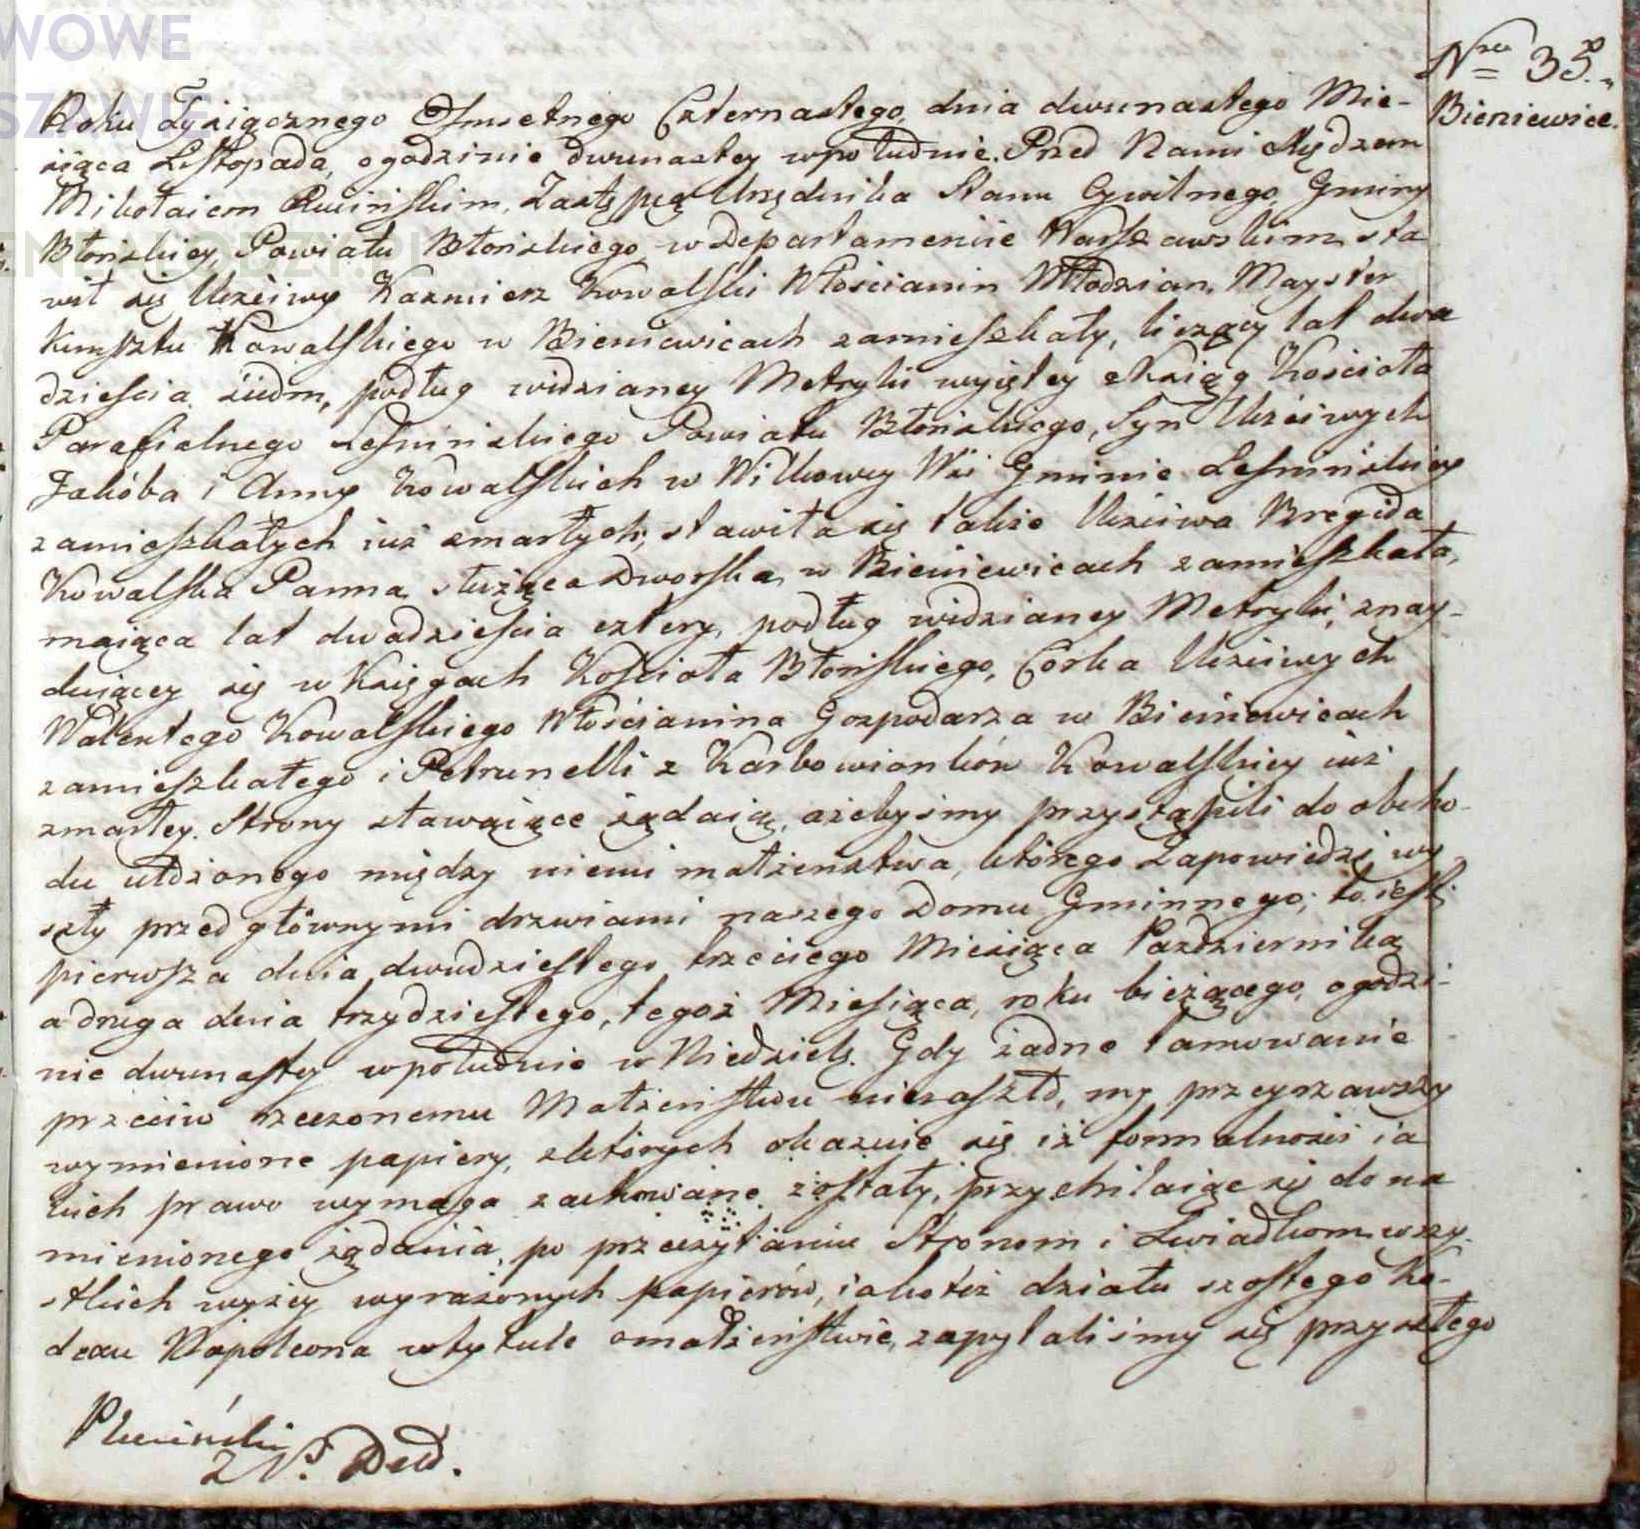 WOWE
SZAWIE
Nro 35.
Bieniewice.
Roku Tysiącznego Osmsetnego Czternastego, dnia dwunastego Mie-
siąca Listopada, o godzinie dwunastey wpołudnie. Przed Nami Xiędzem
Mikołaiem Zastępcą Urzędnika Stanu Cywilnego, Gminy
Błońskiey, Powiatu Błońskiego w Departamencie Warszawskim sta
wił się Uczciwy Kazmierz Kowalski Włościanin Młodzian, Mayster
kunsztu Kowalskiego w Bieniewicach zamieszkały, liczący lat dwa
dzieścia siedm, podług widzianey Metryki wyiętey z Xiąg Kościoła
Parafialnego Lesmińskiego Powiatu Błońskiego, Syn Uczciwych
Jakóba i Anny Kowalskich w Wilkowey Wsi Gminie Lesmińskiey
zamieszkałych iuż zmarłych; stawiła się także Uczciwa Bregida
Kowalska Panna służąca Dworska, w Bieniewicach zamieszkała,
maiąca lat dwadzieścia cztery, podług widzianey Metryki, znay-
duiącey się w Księgach Kościoła Błońskiego, Corka Uczciwych
Walentego Kowalskiego Włościanina Gospodarza w Bieniewicach
zamieszkałego i Petrunelli z Karbowianków Kowalskiey iuż
zmarłey. Strony stawaiące żądaią, ażebyśmy przystąpili do obcho-
du ułożonego między niemi małżeństwa, którego Zapowiedzi wy
szły przed głównymi drzwiami naszego Domu Gminnego; to iest:
pierwsza dnia dwudziestego trzeciego Miesiąca Października
a druga dnia trzydziestego, tegoż Miesiąca, roku bieżącego, o godzi-
nie dwunastey wpołudnie w Niedzielę. Gdy żadne tamowanie
przeciw rzeczonemu Małżeństwu niezaszło, my przeyrzawszy
wymienione papiery, z których okazuie się iż formalności ia
kich prawo wymaga zachowane zostały, przychilaiąc się do na
mienionego żądania, po przeczytaniu Stronom i Swiadkom wszy-
stkich wyżey wyrażonych papierów, iako też działu szostego Ko-
dexu Napoleona w tytule o małżeństwie, zapytaliśmy się przyszłego